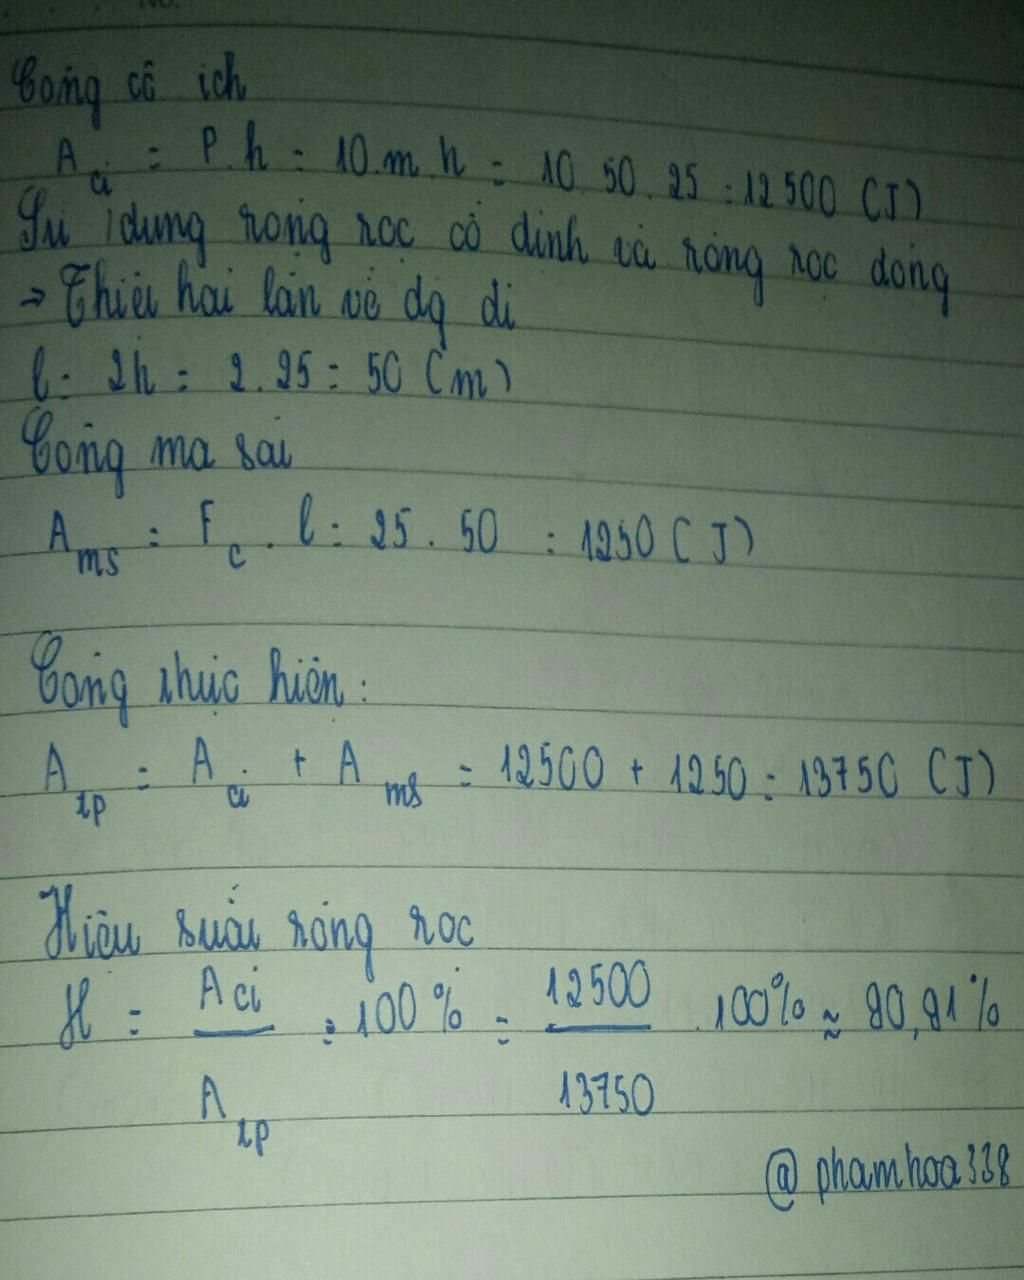 Công có ích
A ci = P.h = 10.m.h = 10.50.25 = 12500 (J)
Sử dụng ròng rọc cố định và ròng rọc động
→ Thiệt hai lần về đg đi
l = 2h = 2.25 = 50 (m)
Công ma sát
A ms = F c . l = 25 . 50 = 1250 (J)
Công thực hiện:
A tp = A ci + A ms = 12500 + 1250 = 13750 (J)
Hiệu suất ròng rọc
H = A ci / A tp . 100% = 12500 / 13750 . 100% ≈ 90,91%
@phamhoa338